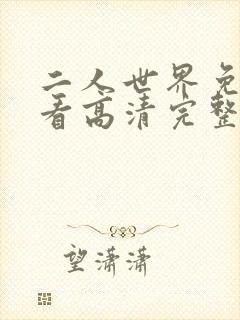 二人世界免
看高清完整
望潇潇